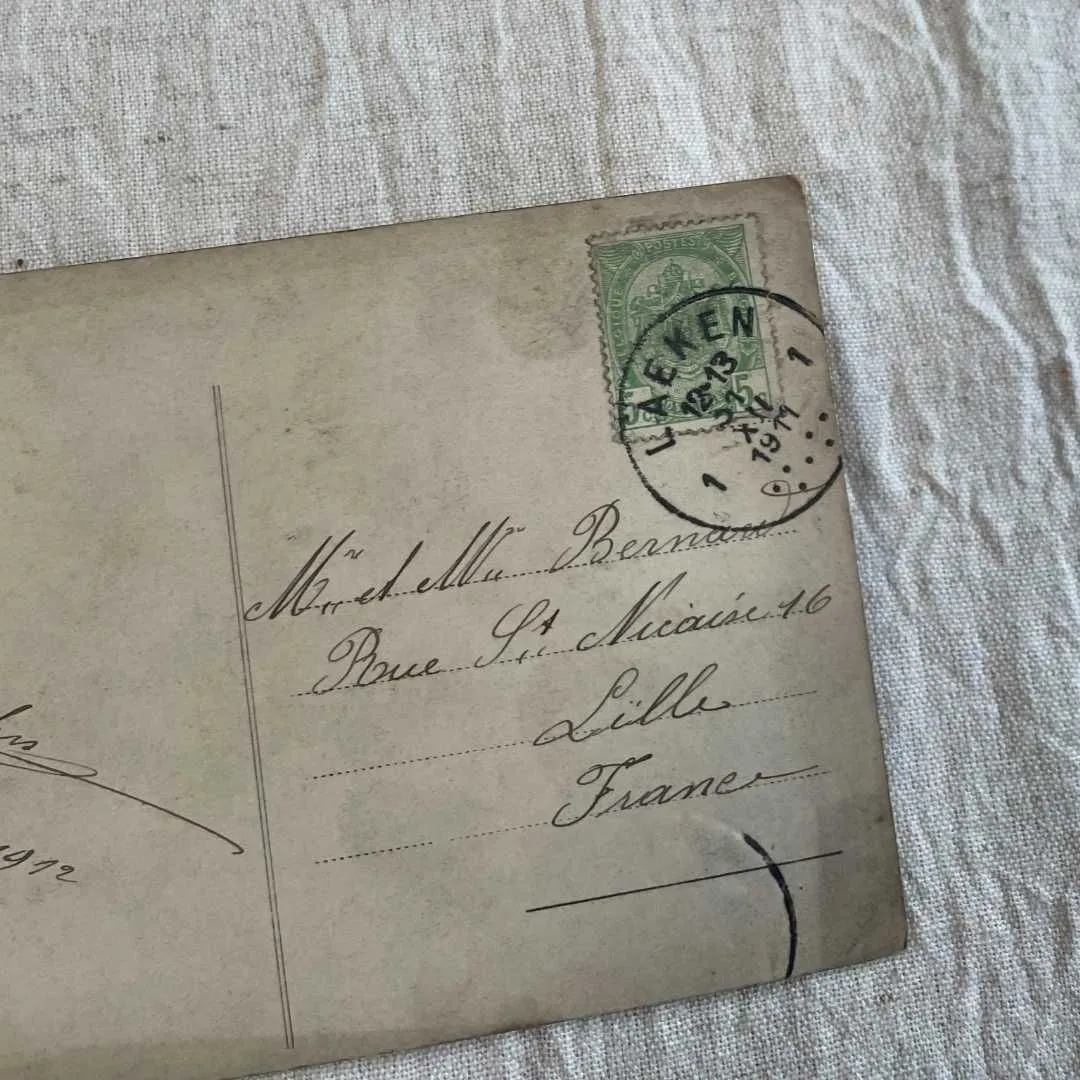 POSTES
5 5
LAEKEN
12-13
31
XII
1911
1 1
Mr et Me Bernard
Rue St Nicaise 16
Lille
France
1912